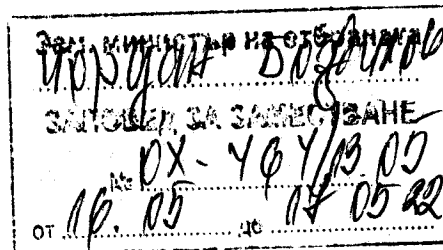 Зам. министър на отбраната
Йордан Божилов
ЗАПОВЕД ЗА ЗАМЕСТВАНЕ
№ ОХ-464/13.05
от 16.05 до 17.05.22